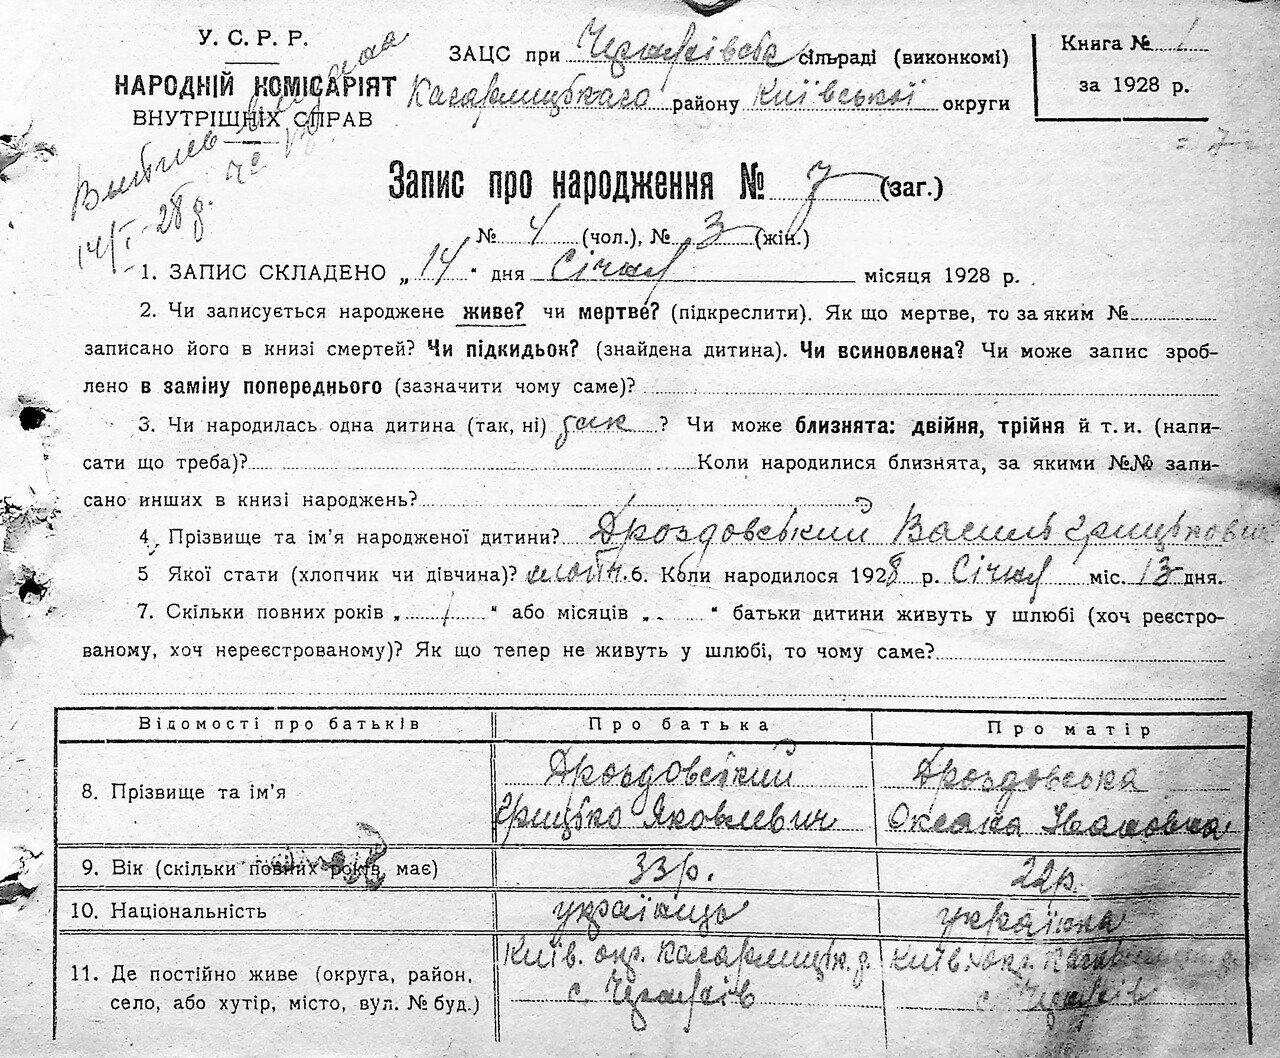 У. С. Р. Р.
НАРОДНІЙ КОМІСАРІЯТ
ВНУТРІШНІХ СПРАВ
ЗАЦС при сільраді (виконкомі)
Кагарлицького району Київської округи
Книга № 1
за 1928 р.
14/I-28 р.
= 7 =
Запис про народження № 7 (заг.)
№ 4 (чол.), № 3 (жін.)
1. ЗАПИС СКЛАДЕНО „ 14 “ дня Січня місяця 1928 р.
2. Чи записується народжене живе? чи мертве? (підкреслити). Як що мертве, то за яким №
записано його в книзі смертей? Чи підкидьок? (знайдена дитина). Чи всиновлена? Чи може запис зроб-
лено в заміну попереднього (зазначити чому саме)?
3. Чи народилась одна дитина (так, ні) так ? Чи може близнята: двійня, трійня й т. и. (напи-
сати що треба)? Коли народилися близнята, за якими №№ запи-
сано инших в книзі народжень?
4. Прізвище та ім’я народженої дитини? Дроздовський Василь Грицькович
5 Якої стати (хлопчик чи дівчина)? хлопч. 6. Коли народилося 1928 р. Січня міс. 13 дня.
7. Скільки повних років „ 1 “ або місяців „ “ батьки дитини живуть у шлюбі (хоч реєстро-
ваному, хоч нереєстрованому)? Як що тепер не живуть у шлюбі, то чому саме?
Відомості про батьків Про батька Про матір
8. Прізвище та ім’я
Дроздовський
Грицько Яковлевич
Дроздовська
Оксана Івановна
9. Вік (скільки повних років має) 33 р. 22 р.
10. Національність українець українка
11. Де постійно живе (округа, район,
село, або хутір, місто, вул. № буд.)
Київ. окр. Кагарлицьк. р.
Київ. окр.